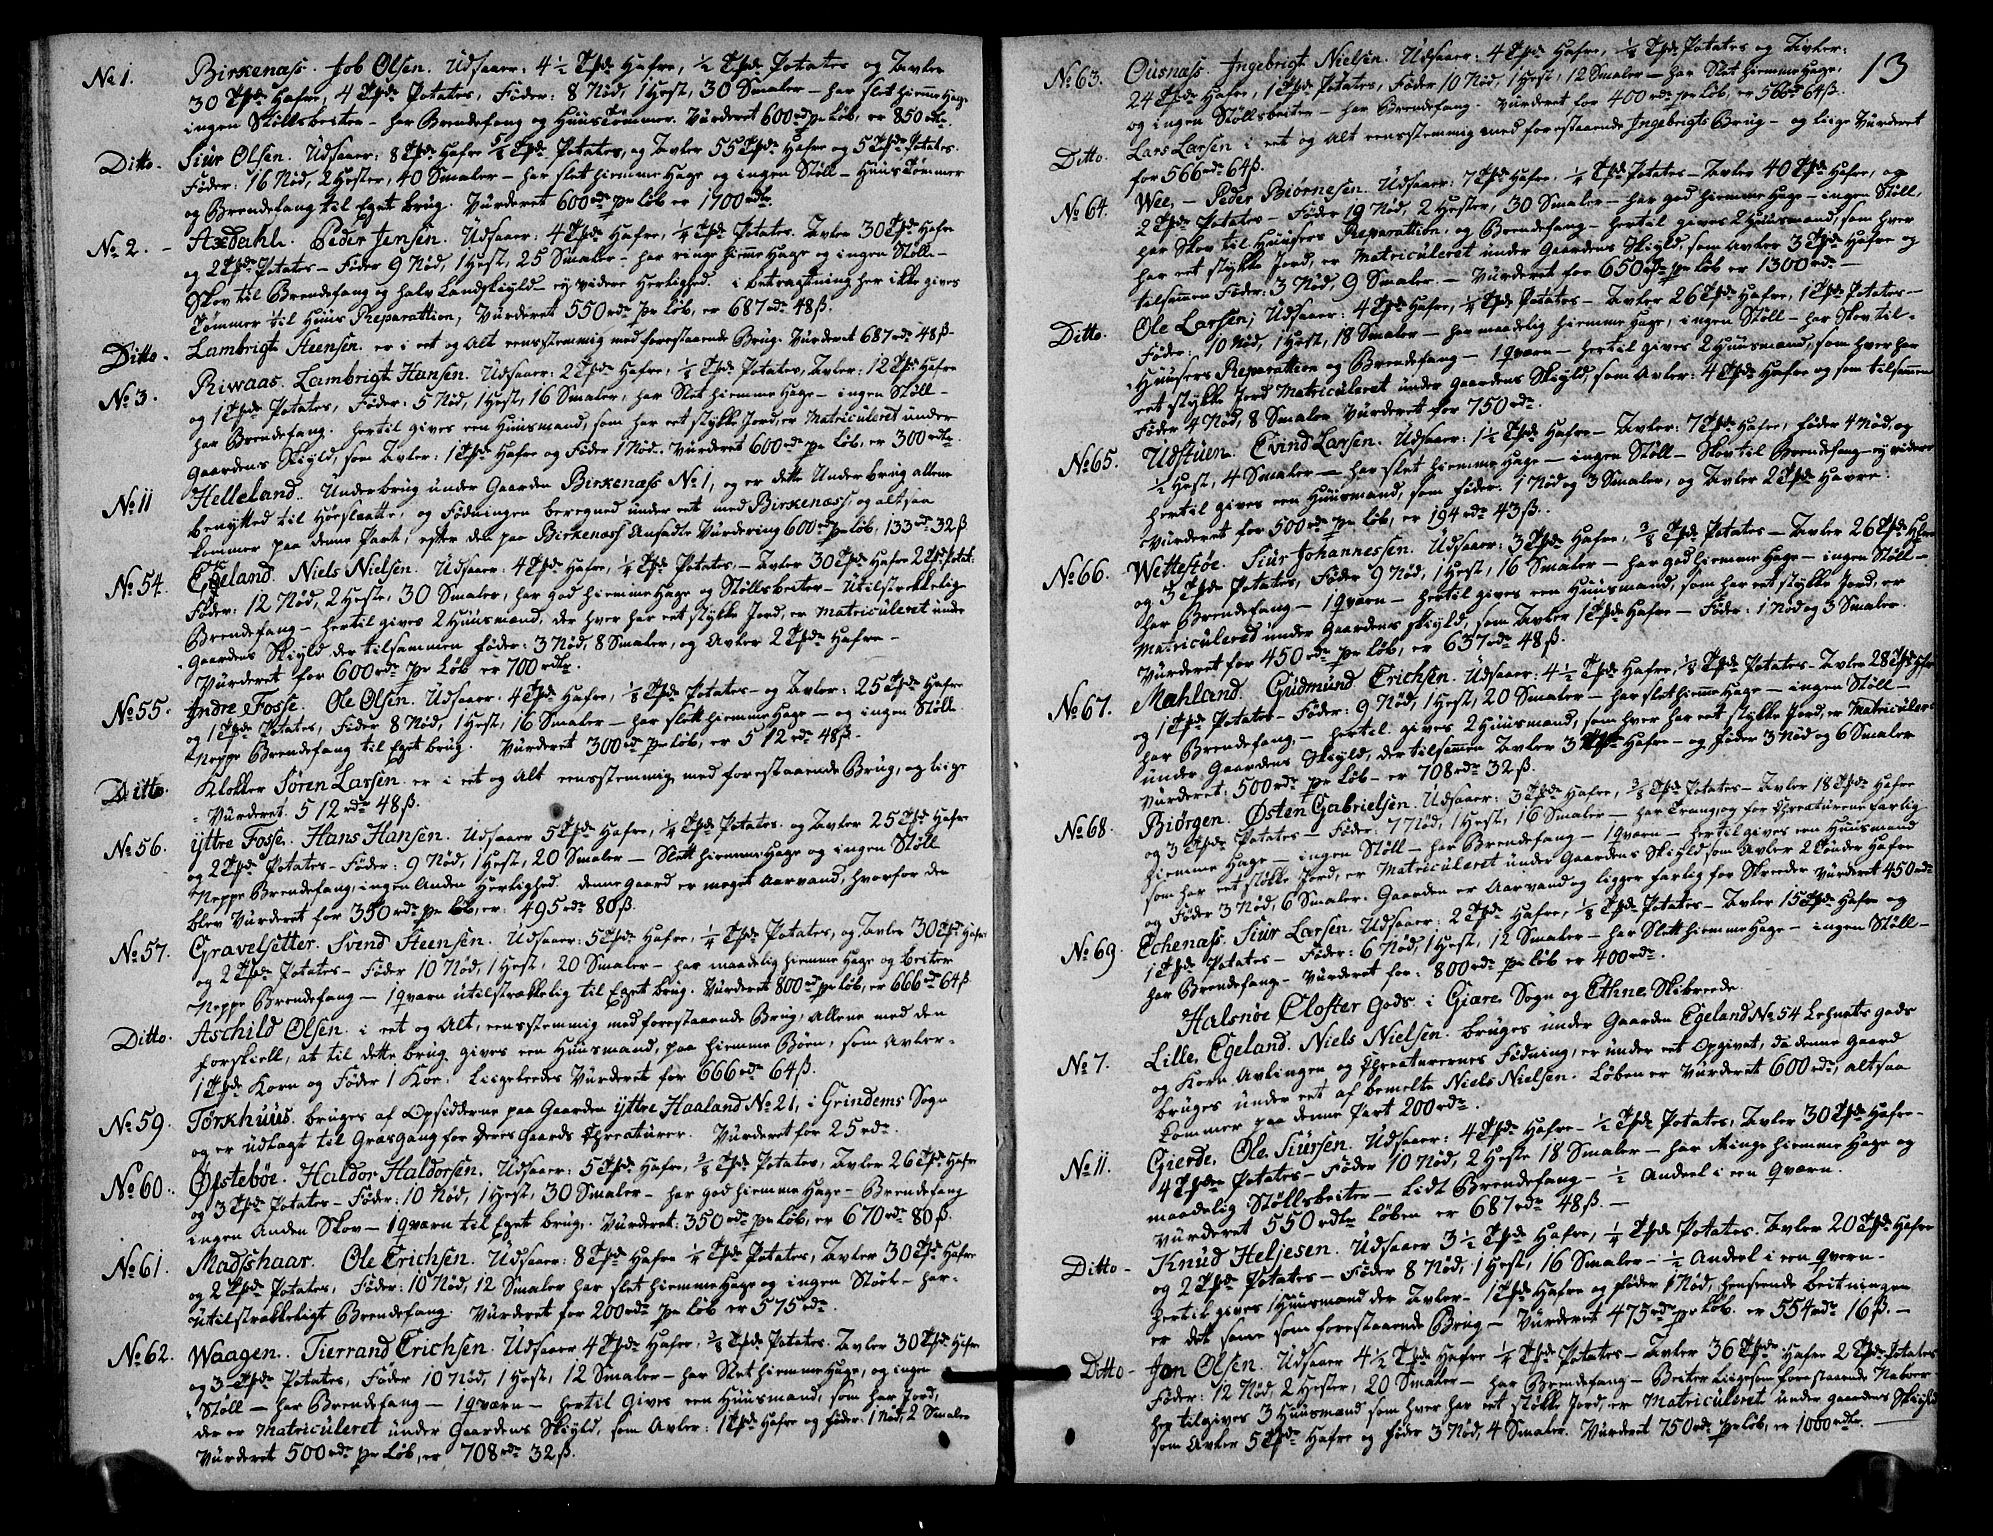 No 1. Birkenæss. Job Olsen. Udsaaer: 4 1/2 Tpde Hafre, 1/2 Tpde Potates og Avler
30 Tpde Hafre, 4 Tpde Potates, Føder: 8 Nød, 1 Hest, 30 Smaler – har slet hiemme Hage
ingen Støllsbeiter – har Brendefang og Huus Tømmer. Vurderet 600 rd pr Løb, er 850 rdr.
Ditto. Siur Olsen. Udsaaer: 8 Tpde Hafre 5/8 Tpde Potates, og Avler 55 Tpde Hafre og 5 Tpde Potates.
Føder: 16 Nød, 2 Hester, 40 Smaler – har slet hiemme Hage og ingen Støll – Huus Tømmer
og Brendefang til Eget brug. Vurderet 600 rdr pr Løb er 1700 rdlr.
No 2. – Axdahl. Peder Jensen. Udsaaer: 4 Tpde Hafre, 1/4 Tpde Potates. Avler 30 Tpde Hafre
og 2 Tpde Potates – Føder 9 Nød, 1 Hest, 25 Smaler – har ringe hieme Hage og ingen Støll –
Skov til Brendefang og halv Landskyld – ey videre Herlighed. i betragtning her ikke gives
Tømmer til Huus Reparattion, Vurderet 550 rdr pr Løb, er 687 rdr 48 ß.
Ditto. Lambrigt Steensen. er i eet og Alt eensstemmig med forestaaende Brug. Vurderet 687 rdr 48 ß.
No 3. Riwaas. Lambrigt Hansen. Udsaaer: 2 Tpde Hafre, 1/8 Tpde Potates, Avler: 12 Tpde Hafre
og 1 Tpde Potates, Føder: 5 Nød, 1 Hest, 16 Smaler, har Slet hiemme Hage – ingen Støll –
har Brendefang. hertil gives een Huusmand, som har eet stykke Jord, er Matriculeret under
Gaardens Skyld, som Avler: 1 Tpde Hafre og Føder 1 Nød. Vurderet 600 rdr pr Løb, er 300 rdlr.
No 11 Helleland. Underbrug under Gaarden Birkenæss No 1, og er dette Underbrug allene
benytted til Høeslaatte, og Fødningen beregned under eet med Birkenæss, og altsaa
kommer paa denne Part, efter den paa Birkenæss Ansadte Vurdering 600 rd pr Løb, 133 rdr 32 ß
No 54. Egeland. Niels Nielsen. Udsaaer: 4 Tpde Hafre, 1/4 Tpde Potates – Avler 30 Tpde Hafre 2 Tpde Potat.
Føder: 12 Nød, 2 Heste, 30 Smaler, har god hiemme Hage og Støllsbeiter – Utilstrekkelig
Brendefang – hertil gives 2 Huusmænd, der hver har eet stykke Jord, er Matriculeret unde
Gaardens Skyld der tilsammen føder: 3 Nød, 8 Smaler, og Avler 2 Tpde Hafre –
Vurderet for 600 rdr pr Løb er 700 rdlr.
No 55. Indre Fosse. Ole Olsen. Udsaaer: 4 Tpde Hafre, 1/8 Tpde Potates – og Avler: 25 Tpde Hafre
og 1 Tpde Potates, Føder 8 Nød, 1 Hest, 16 Smaler – har slett hiemme Hage – og ingen Støll
Neppe Brendefang til Eget brug. Vurderet 300 rdr pr Løb, er 512 rdr 48 ß.
Ditto. Klokker Søren Larsen. er i eet og Alt eensstemmig med forestaaende Brug, og liige
Vurderet 512 rdr 48 ß.
No 56. Yttre Fosse. Hans Hansen. Udsaaer 5 Tpde Hafre, 1/4 Tpde Potates. og Avler 25 Tpde Hafre
og 2 Tpde Potates – Føder: 9 Nød, 1 Hest, 20 Smaler – Slett hiemme Hage og ingen Støll
Neppe Brendefang, ingen Anden Herlighed. denne gaard er meget Aarvand, hvorfor den
blev Vurderet for 350 rdr pr Løb, er: 495 rdr 80 ß.
No 57. Gravelsetter. Svend Steensen. Udsaaer: 5 Tpde Hafre, 1/4 Tpde Potates, og Avler 30 Tpde Hafre
og 2 Tpde Potates – Føder 10 Nød, 1 Hest, 20 Smaler – har maadelig hiemme Hage og beiter
Neppe Brendefang – 1 qværn utilstrækkelig til Eget brug. Vurderet 800 rdr pr Løb, er 666 rdr 64 ß.
Ditto. Aschild Olsen. i eet og Alt, eensstemmig med forestaaende Brug, Allene med den
forskiell, at til dette brug gives een Huusmand, paa hiemme Børn, som Avler –
1 Tpde Korn og Føder 1 Koe. Liigeleedes Vurderet for 666 rdr 64 ß.
No 59. Tørkhuus. bruges af Opsidderne paa Gaarden yttre Haaland No 21, i Grindems Sogn
og er udlagt til Græsgang for deres Gaards Creaturer. Vurderet for 25 rdr.
No 60. Østebøe. Haldor Haldorsen. Udsaaer: 5 Tpde Hafre, 3/8 Tpde Potates, Avler 26 Tpde Hafre
og 3 Tpde Potates – Føder: 10 Nød, 1 Hest, 30 Smaler – har god hiemme Hage – Brendefang
ingen Anden Skov – 1 qværn til Eget brug. Vurderet: 350 rdr pr Løb, er 670 rdr 80 ß.
No 61. Madshaar. Ole Erichsen. Udsaaer: 8 Tpde Hafre 1/4 Tpde Potates, Avler 30 Tpde Hafre
og 2 Tpde Potates, Føder: 10 Nød, 12 Smaler har slet hiemme Hage og ingen Støel – har –
utilstrækkeligt Brendefang. Vurderet for 200 rdr pr Løb er 575 rdr.
No 62. Waagen. Tierrand Erichsen. Udsaaer 4 Tpde Hafre, 3/8 Tpde Potates. Avler 30 Tpde Hafre
og 3 Tpde Potates, Føder 10 Nød, 1 Hest, 12 Smaler – har Slet hiemme Hage, og ingen
Støll – har Brendefang – 1 qværn – hertil gives een Huusmand, som har Jord,
der er Matriculeret under Gaardens Skyld, som Avler: 1 Tpde Hafre og føder: 1 Nød, 2 Smaler
Vurderet 500 rdr pr Løb, er 708 rdr 32 ß.
13
No 63. Ousnæss. Ingebrigt Nielsen. Udsaaer: 4 Tpde Hafre, 1/8 Tpde Potates og Avler:
24 Tpde Hafre, 1 Tpde Potates, Føder 10 Nød, 1 Hest, 12 Smaler – har Slet hiemme Hage,
og ingen Støllsbeiter – har Brendefang. Vurderet for 400 rdr pr Løb, er 566 rdr 64 ß.
Ditto. Lars Larsen i eet og Alt eensstemmig med forestaaende Ingebrigts Brug – og liige Vurderet
for 566 rdr 64 ß.
No 64. Wee, – Peder Biørnesen. Udsaaer: 7 Tpde Hafre, 1/4 Tpde Potates – Avler 40 Tpde Hafre, og
2 Tpde Potates – Føder 19 Nød, 2 Hester, 30 Smaler – har god hiemme Hage – ingen Støll,
har Skov til Huusers Reparattion, og Brendefang – hertil gives 2 Huusmænd, som hver
har eet stykke Jord, er Matriculeret under Gaardens Skyld, som Avler 3 Tpde Hafre og
tilsammen Føder: 3 Nød, 9 Smaler – Vurderet for 650 rdr pr Løb er 1300 rdr –
Ditto. Ole Larsen, Udsaaer: 4 Tpde Hafre, 1/4 Tpde Potates – Avler 26 Tpde Hafre, 1 Tpde Potates –
Føder: 10 Nød, 1 Hest, 18 Smaler – har maadelig hiemme Hage, ingen Støll – har Skov til –
Huusers Reparattion og Brendefang – 1 qværn – hertil gives 2 Huusmænd, som hver har
eet stykke Jord Matriculeret under Gaardens Skyld, som Avler: 4 Tpde Hafre og som tilsammen
Føder 4 Nød, 8 Smaler Vurderet for 750 rdr.
No 65. Udstuen. Evind Larsen. Udsaaer: 1 1/2 Tpde Hafre – Avler: 7 Tpde Hafre, føder 4 Nød, og
1/2 Hest, 4 Smaler – har slet hiemme Hage – ingen Støll – Skov til Brendefang – ey videre
hertil gives een Huusmand, som føder: 1 Nød og 3 Smaler, og Avler 2 Tpde Havre.
Vurderet for 500 rdr pr Løb, er 194 rdr 43 ß.
No 66. Wettestøe. Siur Johannessen. Udsaaer: 3 Tpde Hafre, 3/8 Tpde Potates – Avler 26 Tpde Hafre
og 3 Tpde Potates, Føder 9 Nød, 1 Hest, 16 Smaler – har god hiemme Hage – ingen Støll –
har Brendefang – 1 qværn – hertil gives een Huusmand, som har eet stykke Jord, er
Matriculered under Gaardens Skyld, som Avler 1 Tpde Hafre – Føder: 1 Nød og 3 Smaler.
Vurderet for 450 rdr pr Løb, er 637 rdr 48 ß.
No 67. Mahland. Gudmund Erichsen. Udsaaer: 4 1/2 Tpde Hafre, 1/8 Tpde Potates – Avler 28 Tpde Hafre
og 1 Tpde Potates – Føder: 9 Nød, 1 Hest, 20 Smaler – har slet hiemme Hage – ingen Støll –
har Brendefang, – hertil gives 2 Huusmænd, som hver har eet stykke Jord, er Matriculere
under Gaardens Skyld, der tilsammen Avler 3 Tpde Hafre – og føder 3 Nød og 6 Smaler
Vurderet: 500 rdr pr Løb – er 708 rdr 32 ß.
No 68. Biørgen. Østen Gabrielsen. Udsaaer: 3 Tpde Hafre, 3/8 Tpde Potates – Avler 18 Tpde Hafre
og 3 Tpde Potates – Føder: 7 Nød, 1 Hest, 16 Smaler – har Trang og for Creaturene farlig
hiemme Hage – ingen Støll – har Brendefang – 1 qværn – hertil gives een Huusmand
som har eet støkke Jord, er Matriculeret under Gaardens Skyld som Avler 2 Tønder Hafre
og Føder 3 Nød, 6 Smaler. Gaarden er Aarvand og ligger farlig for Skreeder Vurderet 450 rdr
No 69. Echenæss. Siur Larsen. Udsaaer: 2 Tpde Hafre, 1/8 Tpde Potates – Avler 15 Tpde Hafre og
1 Tpde Potates – Føder: 6 Nød, 1 Hest, 12 Smaler – har Slett hiemme Hage – ingen Støll –
har Brendefang – Vurderet for: 800 rdr pr Løb er 400 rdr.
Halsnøe Closter Gods. i Giære Sogn og Ethne Skibreede.
No 7. Lille Egeland. Niels Nielsen. bruges under Gaarden Egeland No 54 Lehnets gods
og Korn Avlingen og Creaturernes Fødning, er under eet Opgivet, da denne Gaard
bruges under eet af bemelte Niels Nielsen. Løben er Vurderet 600 rdr, altsaa
kommer paa denne Part 200 rdr.
No 11. Gierde. Ole Siursen. Udsaaer: 4 Tpde Hafre – 1/2 Tpde Potates, Avler 30 Tpde Hafre –
4 Tpde Potates – Føder 10 Nød, 2 Heste 18 Smaler – har Ringe hiemme Hage og
maadelig Støllsbeiter – Lidt Brendefang – 1/2 Andeel i een qværn.
Vurderet 550 rdlr Løben er 687 rdr 48 ß. –
Ditto – Knud Heljesen. Udsaaer 3 1/2 Tpde Hafre, 1/4 Tpde Potates. Avler 20 Tpde Hafre
og 2 Tpde Potates – Føder 8 Nød, 1 Hest, 16 Smaler – 1/2 Andeel i een qværn –
hertil gives 1 Huusmand der Avler – 1 Tpde Hafre og føder 1 Nød, henseende beitningen
er det samme som forestaaende Brug – Vurderet 475 rdr pr Løb. er 554 rdr 16 ß. –
Ditto – Jon Olsen. Udsaaer 4 1/2 Tpde Hafre 1/4 Tpde Potates – Avler 36 Tpde Hafre 2 Tpde Potates
Føder: 12 Nød, 2 Hester, 20 Smaler – har Brendefang – Beiter liigesom forestaaende Naboer
her tilgives 3 Huusmænd som hver har eet støkke Jord, er Matriculeret under gaardens Skyld
som Avler 5 Tpde Hafre og føder 3 Nød, 4 Smaler. Vurderet 750 rdr pr Løb, er 1000 rdlr.